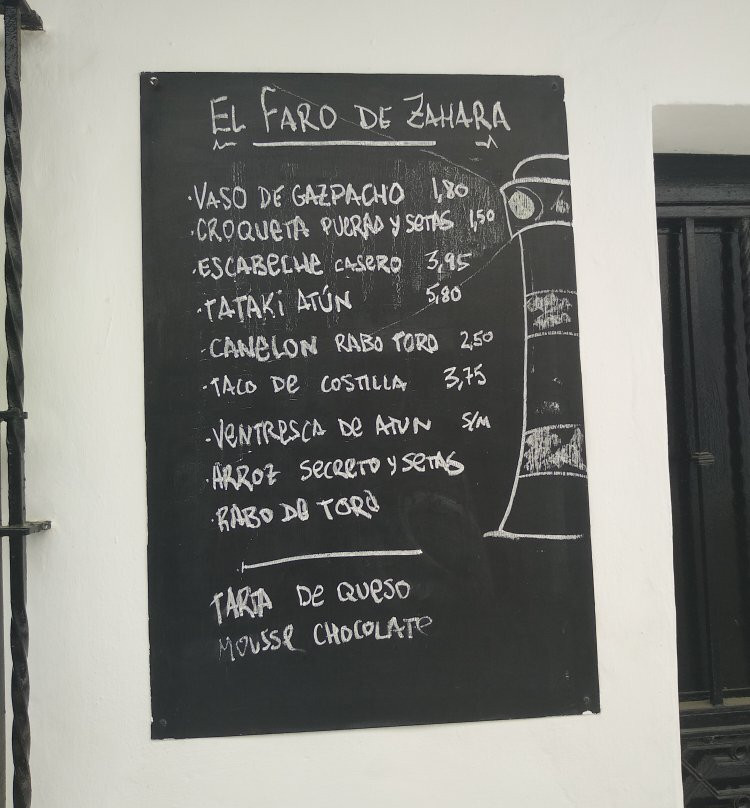 EL FARO DE ZAHARA
·VASO DE GAZPACHO 1,80
·CROQUETA PUERRO Y SETAS 1,50
·ESCABECHE CASERO 3,95
·TATAKI ATÚN 5,80
·CANELON RABO TORO 2,50
·TACO DE COSTILLA 3,75
·VENTRESCA DE ATUN S/M
·ARROZ SECRETO Y SETAS
·RABO DE TORO
TARTA DE QUESO
MOUSSE CHOCOLATE